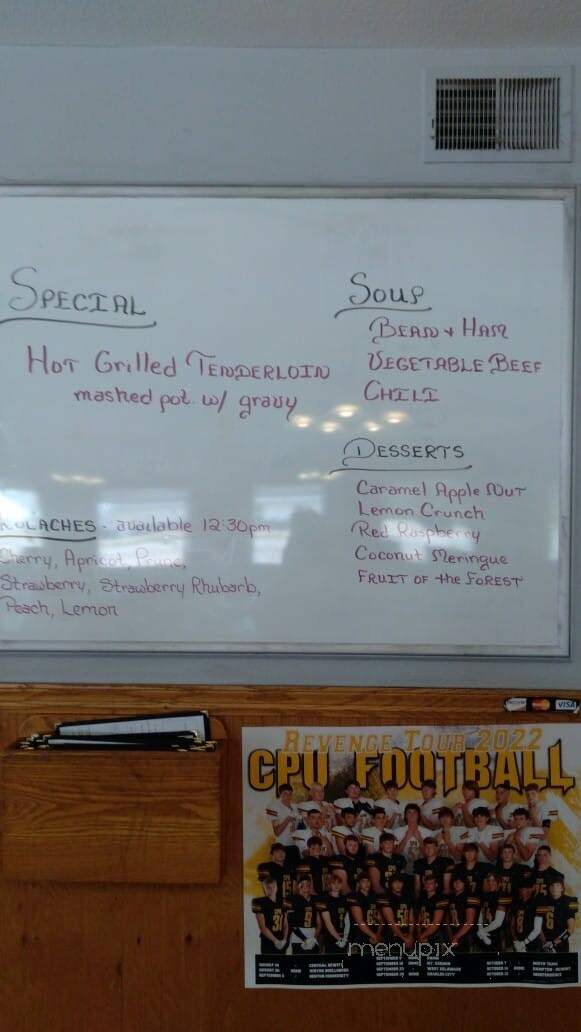 SPECIAL
HOT GRILLED TENDERLOIN
mashed pot. w/ gravy
SOUP
BEAN + HAM
VEGETABLE BEEF
CHILI
DESSERTS
Caramel Apple Nut
Lemon Crunch
Red Raspberry
Coconut Meringue
FRUIT OF the FOREST
KOLACHES - available 12:30pm
Cherry, Apricot, Prune,
Strawberry, Strawberry Rhubarb,
Peach, Lemon
VISA
REVENGE TOUR 2022
CPU FOOTBALL
menupix